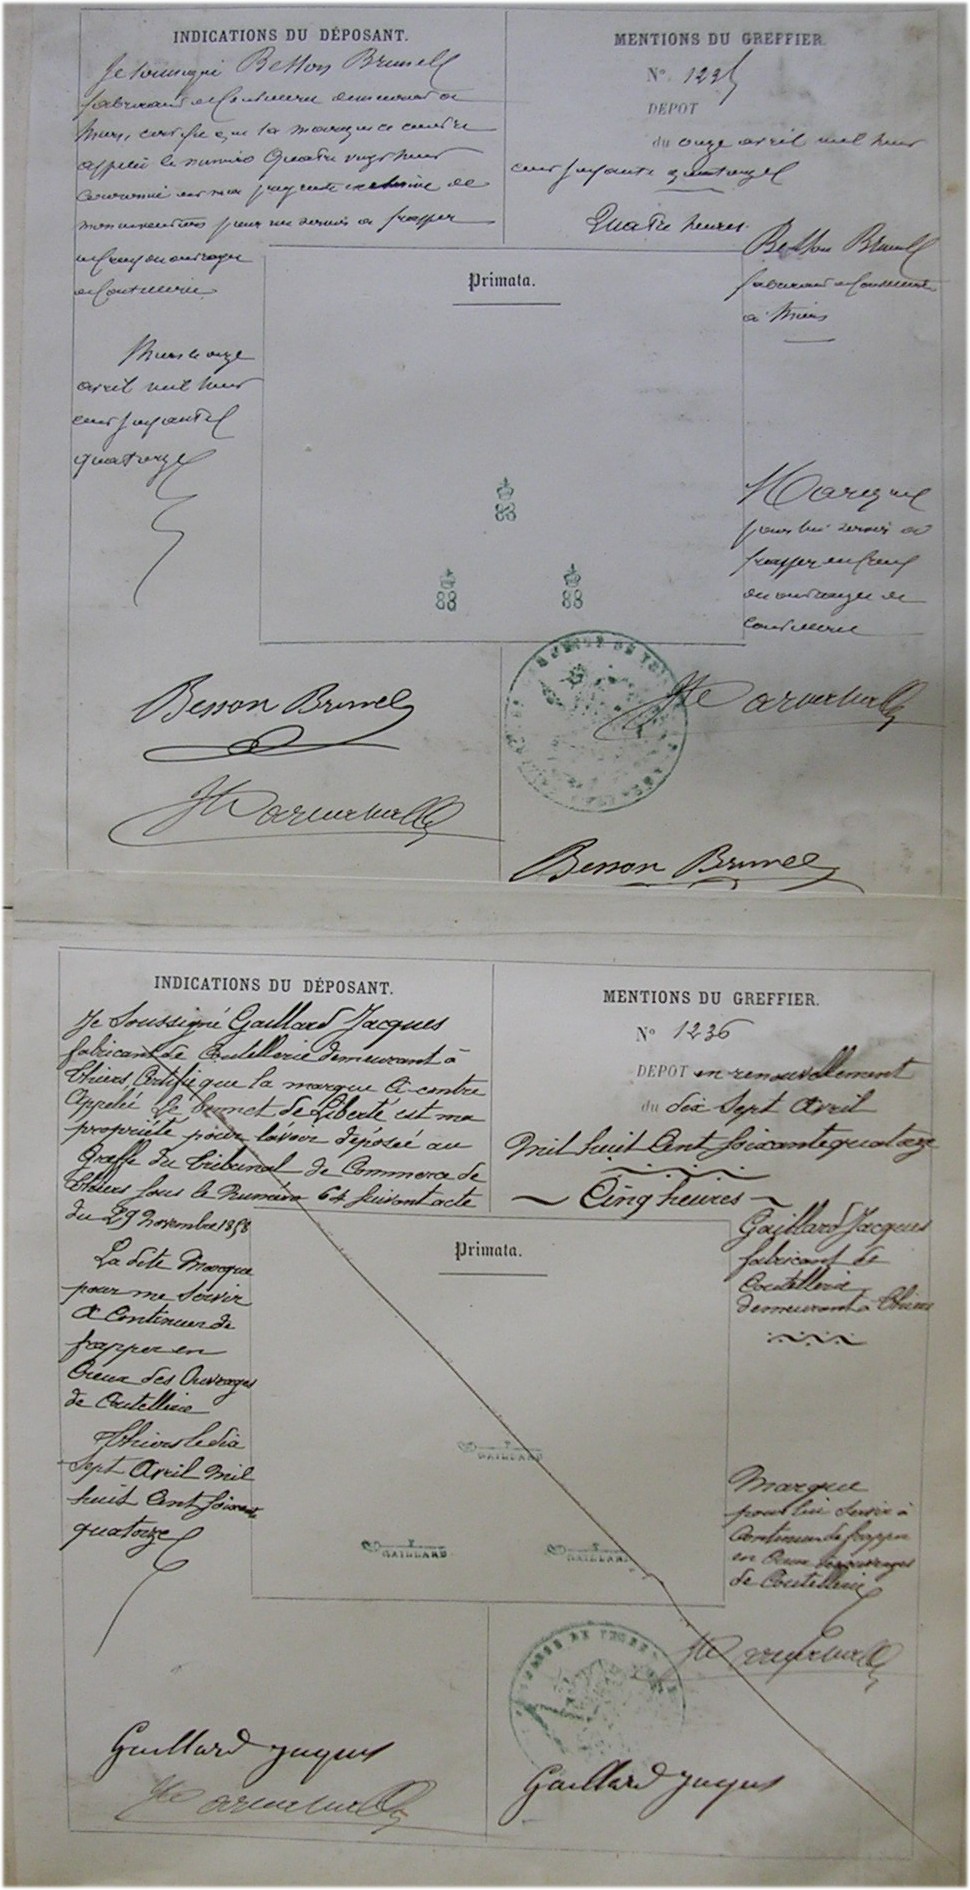 INDICATIONS DU DÉPOSANT.
Je soussigné Besson Brunel
fabricant de Coutellerie demeurant à
Thiers, certifie que la marque ci contre
appelée le numéro Quatre vingt huit
Couronné est ma propriété exclusive de
pour me servir à frapper
en Creux des ouvrages
de Coutellerie
Thiers le onze
avril mil huit
cent soixante
quatorze
MENTIONS DU GREFFIER.
N° 1235
DEPOT
du onze avril mil huit
cent soixante quatorze
Quatre heures.
Besson Brunel
fabricant de Coutellerie
à Thiers
Primata.
Marque
pour lui servir à
frapper en Creux
des ouvrages de
Coutellerie
88
88 88
Besson Brunel
Besson Brunel
INDICATIONS DU DÉPOSANT.
Je Soussigné Gaillard Jacques
fabricant de Coutellerie demeurant à
Thiers, Certifie que la marque Ci-contre
Appelée Le bonnet de Liberté est ma
propriété pour l'avoir déposée au
Greffe du Tribunal de Commerce de
Thiers sous le Numéro 64 suivant acte
du 29 Novembre 1858
La dite Marque
pour me Servir
à Continuer de
frapper en
Creux des Ouvrages
de Coutellerie
Thiers le dix
Sept Avril Mil
huit Cent Soixante
quatorze
MENTIONS DU GREFFIER.
N° 1236
DEPOT en renouvellement
du dix Sept Avril
Mil huit Cent Soixante quatorze
Cinq heures
Gaillard Jacques
fabricant de
Coutellerie
demeurant à Thiers
Primata.
Marque
pour lui Servir à
Continuer de frapper
en Creux des ouvrages
de Coutellerie
GAILLARD
GAILLARD GAILLARD
Gaillard Jacques
Gaillard Jacques